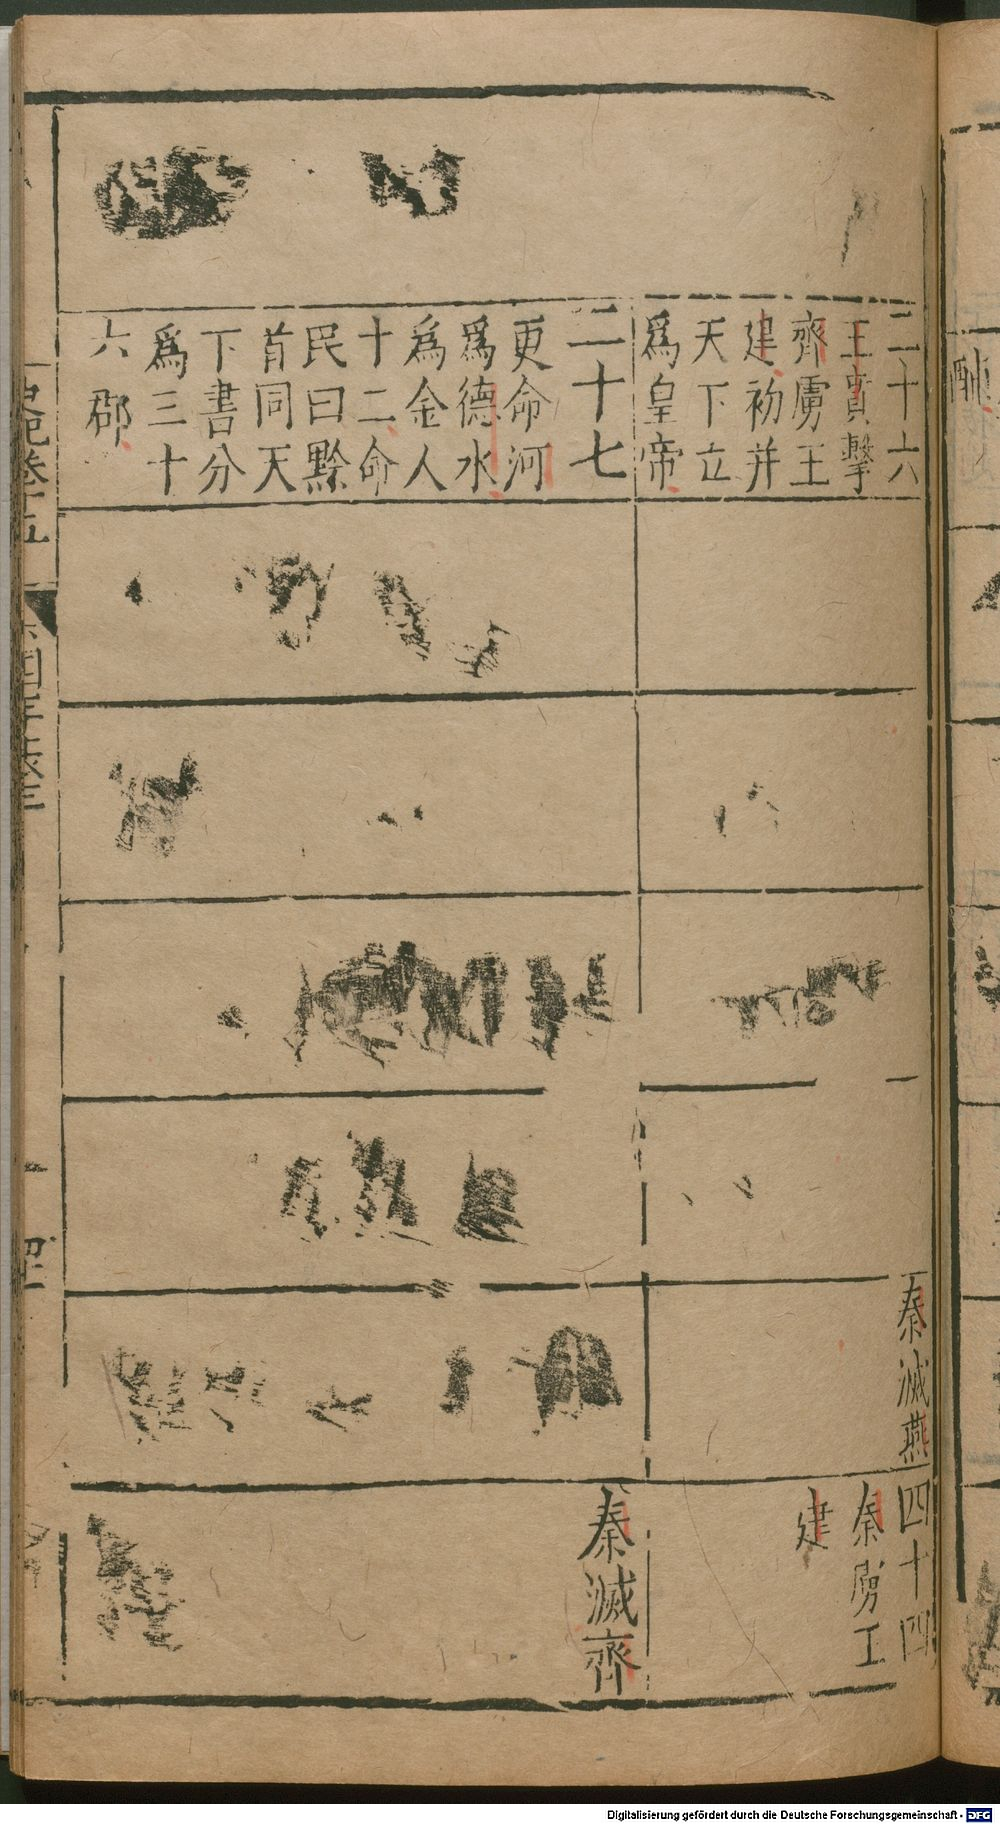 二十六
王賁擊
齊虜王
建初并
天下立
爲皇帝
二十七
更命河
爲德水
爲金人
十二命
民曰黔
首同天
下書分
爲三十
六郡
秦滅燕
四十四
秦虜王
建
秦滅齊
史記卷十五
六國年表三
Digitalisierung gefördert durch die Deutsche Forschungsgemeinschaft - DFG